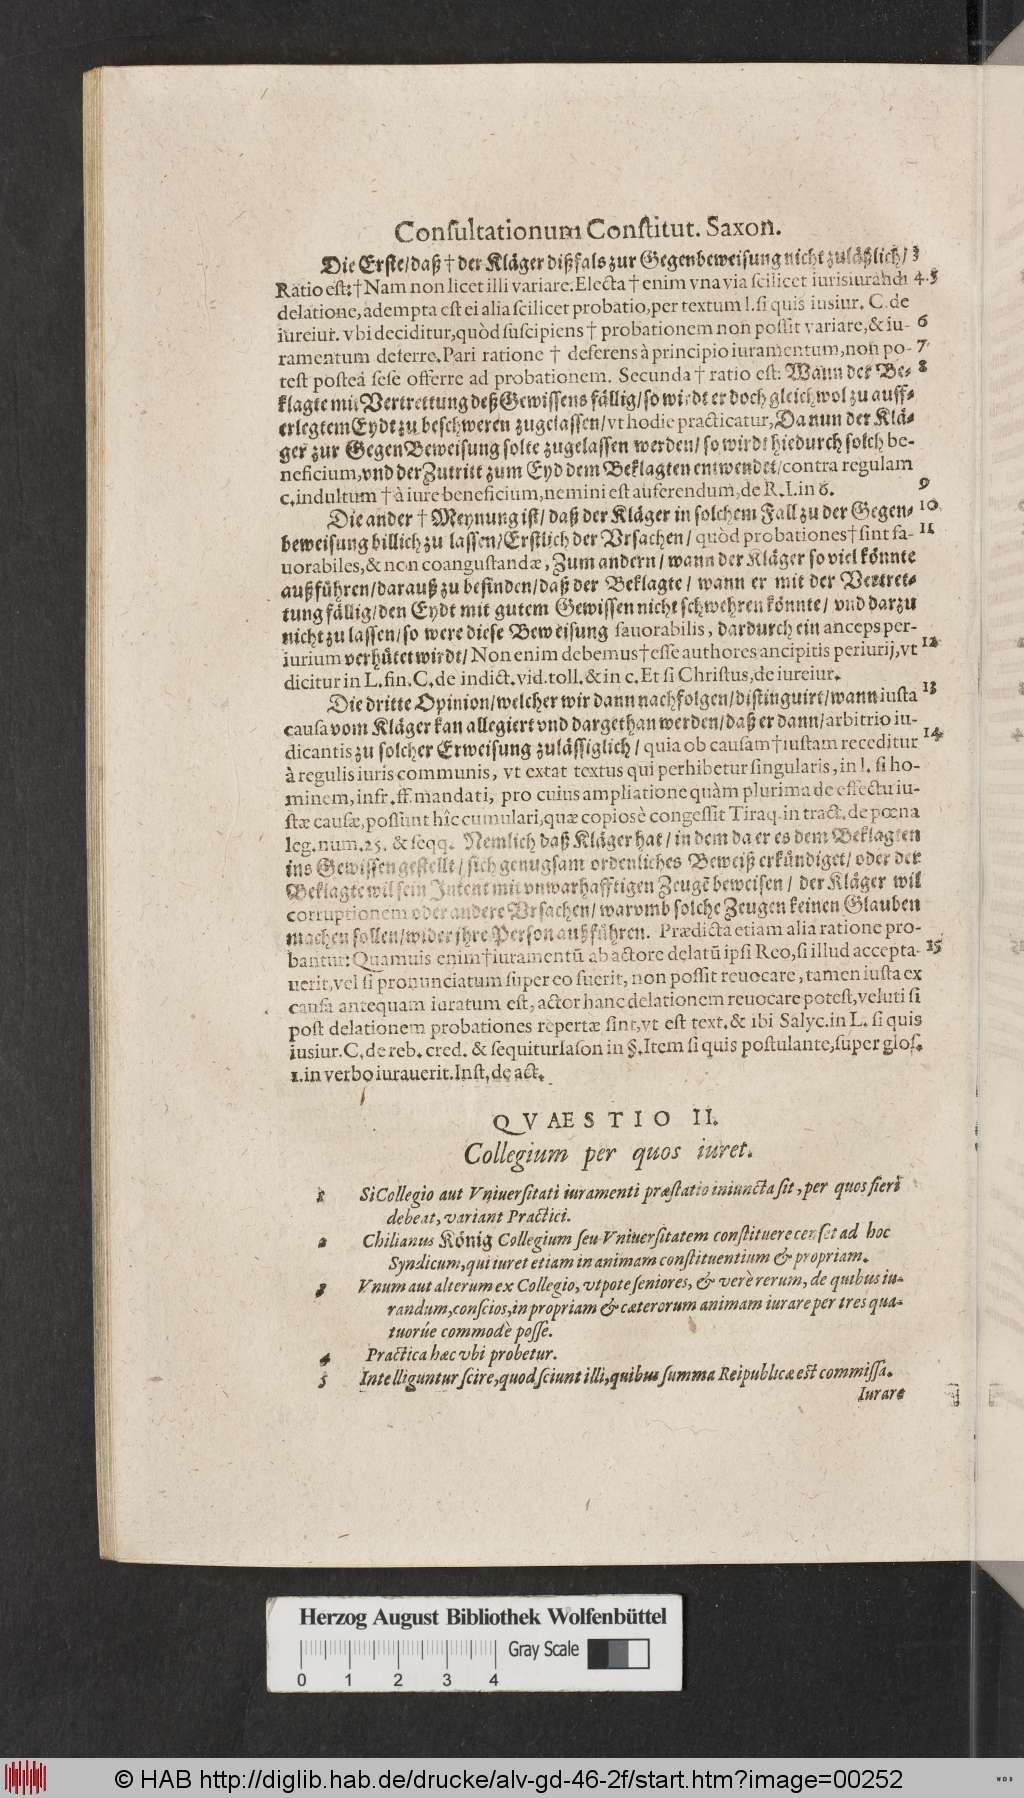 Consultationum Constitut. Saxon.
Die Erste/ daß † der Kläger dißfals zur Gegenbeweisung nicht zuläßlich/ 3
Ratio est: † Nam non licet illi variare. Electa † enim vna via scilicet iurisiurandi 4.5
delatione, adempta est ei alia scilicet probatio, per textum l. si quis iusiur. C. de
iureiur. vbi deciditur, quòd suscipiens † probationem non possit variare, & iu- 6
ramentum deferre. Pari ratione † deferens à principio iuramentum, non po- 7
test posteà sese offerre ad probationem. Secunda † ratio est: Wann der Be- 8
klagte mit Vertrettung deß Gewissens fällig/ so wirdt er doch gleichwol zu auff-
erlegtem Eydt zu beschweren zugelassen/ vt hodie practicatur, Da nun der Klä-
ger zur GegenBeweisung solte zugelassen werden/ so wirdt hiedurch solch be-
neficium, vnd der Zutritt zum Eyd dem Beklagten entwendet/ contra regulam
c. indultum † à iure beneficium, nemini est auferendum, de R. I. in 6. 9
Die ander † Meynung ist/ daß der Kläger in solchem Fall zu der Gegen- 10
beweisung billich zu lassen/ Erstlich der Vrsachen/ quòd probationes † sint fa- 11
uorabiles, & non coangustandæ, Zum andern/ wann der Kläger so viel könnte
außführen/ darauß zu befinden/ daß der Beklagte/ wann er mit der Vertret-
tung fällig/ den Eydt mit gutem Gewissen nicht schwehren könnte/ vnd darzu
nicht zu lassen/ so were diese Beweisung fauorabilis, dardurch ein anceps per-
iurium verhütet wirdt/ Non enim debemus † esse authores ancipitis periurij, vt 12
dicitur in L. fin. C. de indict. vid. toll. & in c. Et si Christus, de iureiur.
Die dritte Opinion/ welcher wir dann nachfolgen/ distinguirt/ wann iusta 13
causa vom Kläger kan allegiert vnd dargethan werden/ daß er dann/ arbitrio iu-
dicantis zu solcher Erweisung zulässiglich/ quia ob causam † iustam receditur 14
à regulis iuris communis, vt extat textus qui perhibetur singularis, in l. si ho-
minem, infr. ff. mandati, pro cuius ampliatione quàm plurima de effectu iu-
stæ causæ, possunt hîc cumulari, quæ copiosè congessit Tiraq. in tract. de pœna
leg. num. 25. & seqq. Nemlich daß Kläger hat/ in dem da er es dem Beklagten
ins Gewissen gestellt/ sich genugsam ordenliches Beweiß erkündiget/ oder der
Beklagte wil sein Intent mit vnwarhafftigen Zeugē beweisen/ der Kläger wil
corruptionem oder andere Vrsachen/ warvmb solche Zeugen keinen Glauben
machen sollen/ wider jhre Person außführen. Prædicta etiam alia ratione pro-
bantur: Quamuis enim † iuramentū ab actore delatū ipsi Reo, si illud accepta- 15
uerit, vel si pronunciatum super eo fuerit, non possit reuocare, tamen iusta ex
causa antequam iuratum est, actor hanc delationem reuocare potest, veluti si
post delationem probationes repertæ sint, vt est text. & ibi Salyc. in L. si quis
iusiur. C. de reb. cred. & sequitur Iason in §. Item si quis postulante, super glos.
1. in verbo iurauerit. Inst, de act.
QVAESTIO II.
Collegium per quos iuret.
1 Si Collegio aut Vniuersitati iuramenti præstatio iniuncta sit, per quos fieri
debeat, variant Practici.
2 Chilianus König Collegium seu Vniuersitatem constituere censet ad hoc
Syndicum, qui iuret etiam in animam constituentium & propriam.
3 Vnum aut alterum ex Collegio, vtpote seniores, & verè rerum, de quibus iu-
randum, conscios, in propriam & cæterorum animam iurare per tres qua-
tuorúe commodè posse.
4 Practica hæc vbi probetur.
5 Intelliguntur scire, quod sciunt illi, quibus summa Reipublicæ est commissa.
Iurare
Herzog August Bibliothek Wolfenbüttel
Gray Scale
0 1 2 3 4
© HAB http://diglib.hab.de/drucke/alv-gd-46-2f/start.htm?image=00252